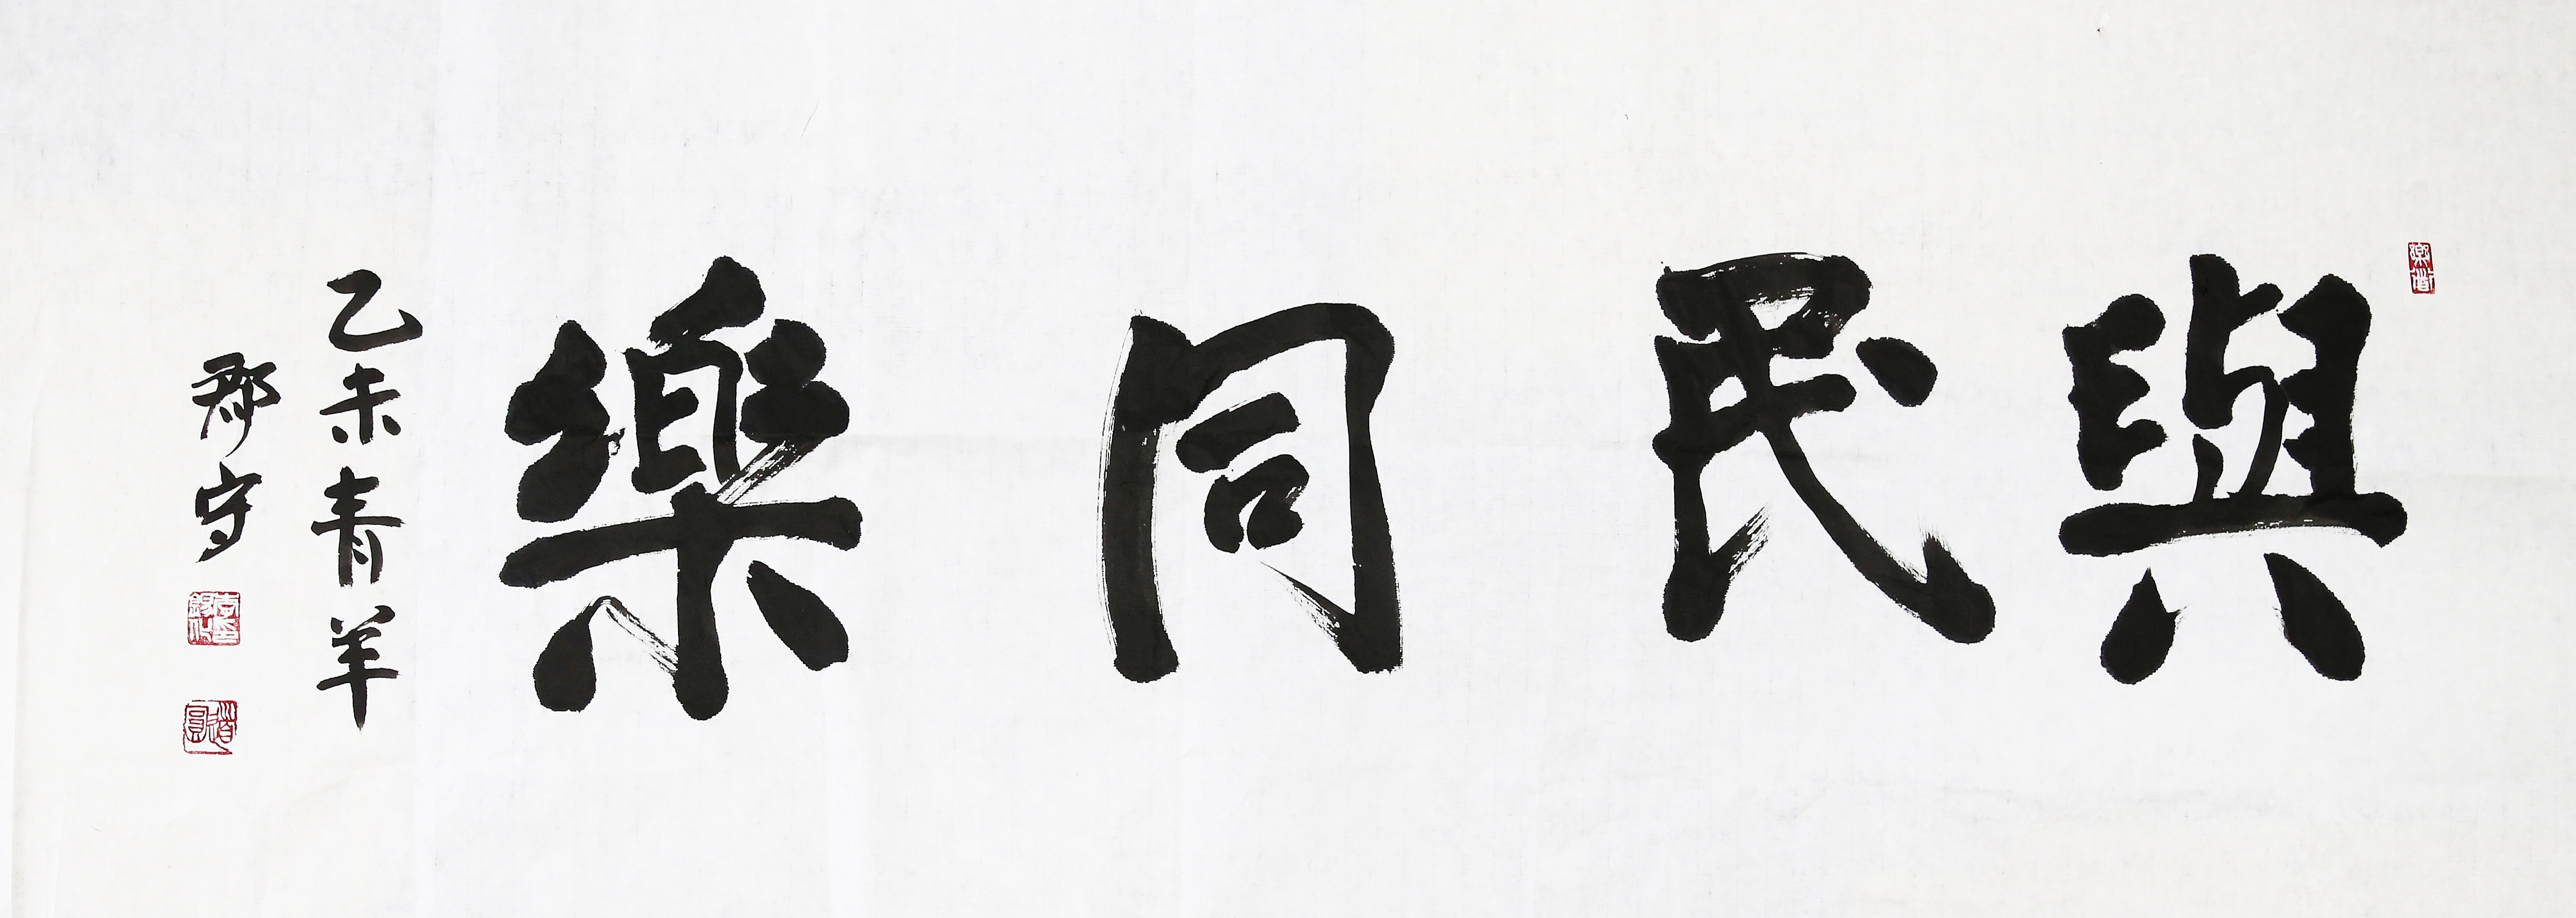 與民同樂
乙未青羊
郡守